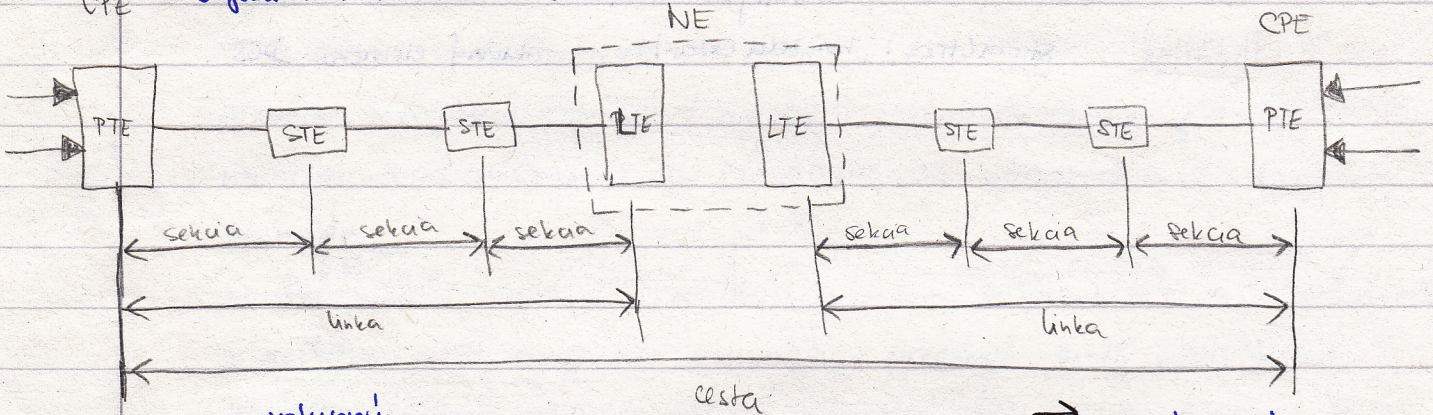 CPE
NE
CPE
PTE STE STE LTE LTE STE STE PTE
sekcia sekcia sekcia sekcia sekcia sekcia
linka linka
cesta